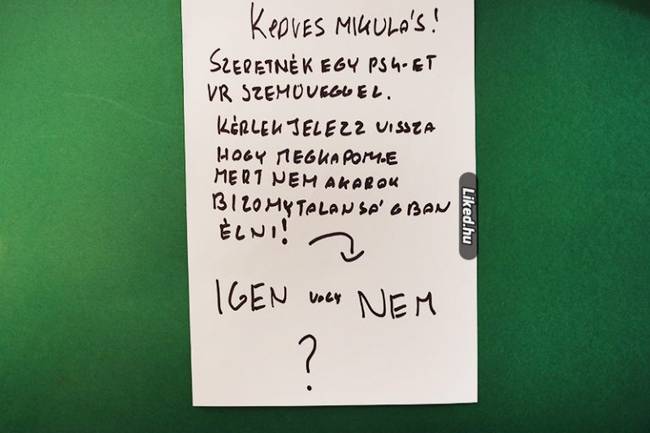 KEDVES MIKULÁS!
SZERETNÉK EGY PS4-ET
VR SZEMÜVEGGEL.
KÉRLEK JELEZZ VISSZA
HOGY MEGKAPOM-E
MERT NEM AKAROK
BIZOMYTALANSÁGBAN
ÉLNI!
IGEN VAGY NEM
?
Liked.hu